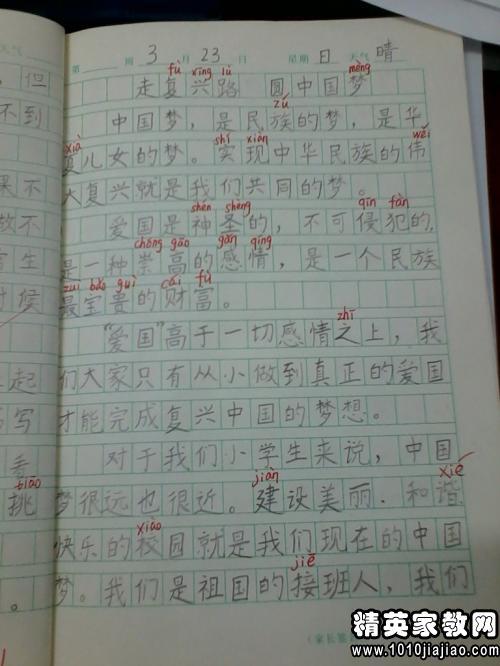 第 周 3 月 23 日 星期 日 天气 晴
走复兴路 圆中国梦
fù xīng lù mèng
中国梦，是民族的梦，是华
zú
夏儿女的梦。实现中华民族的伟
xià shí xiàn wěi
大复兴就是我们共同的梦。
爱国是神圣的，不可侵犯的，
shén shèng qīn fàn
是一种崇高的感情，是一个民族
chóng gāo gǎn qíng
最宝贵的财富。
zuì bǎo guì cái fù
“爱国”高于一切感情之上，我
zhī
们大家只有从小做到真正的爱国
才能完成复兴中国的梦想。
对于我们小学生来说，中国
梦很远也很近。建设美丽、和谐
jiàn xié
快乐的校园就是我们现在的中国
xiào
梦。我们是祖国的接班人，我们
jiē
天气
，但
不到
果不
故不
生
时候
起
写
看
挑
tiāo
。
精英家教网
www.1010jiajiao.com